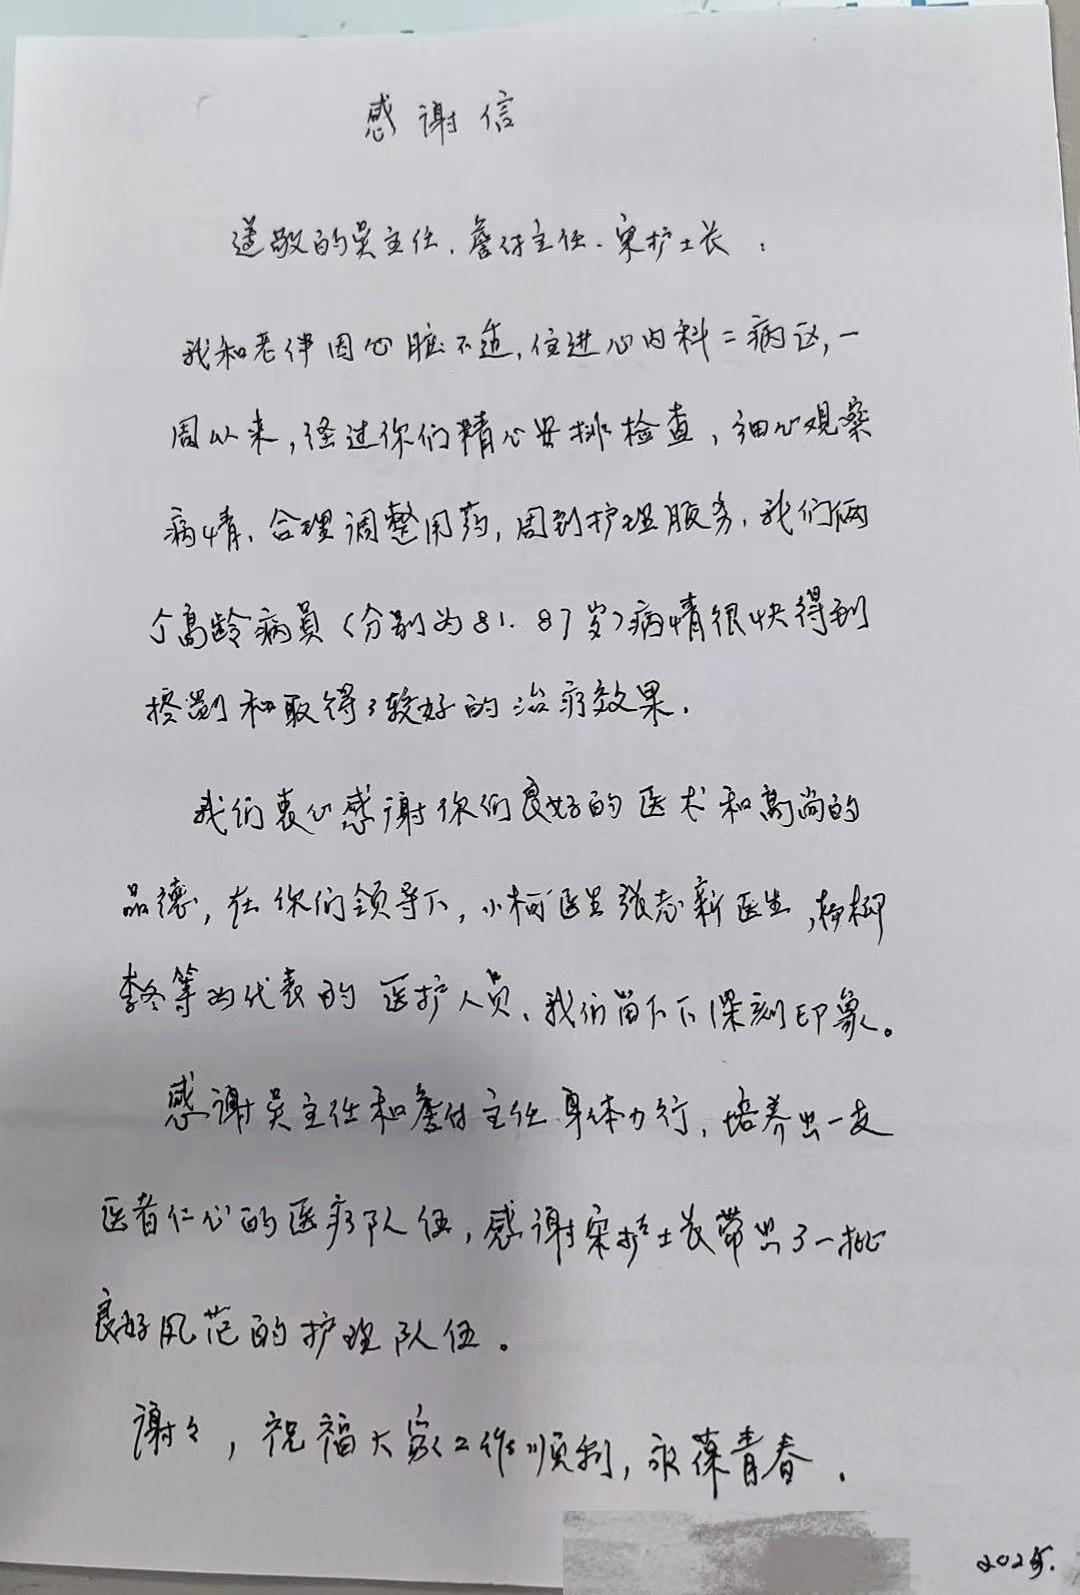 感谢信
尊敬的吴主任、詹付主任、宋护士长：
我和老伴因心脏不适，住进心内科二病区，一
周以来，经过你们精心安排检查，细心观察
病情、合理调整用药，周到护理服务，我们俩
个高龄病员（分别为81、87岁）病情很快得到
控制和取得了较好的治疗效果。
我们衷心感谢你们良好的医术和高尚的
品德，在你们领导下，小柯医生张志新医生，杨柳
李冬等为代表的医护人员、我们留下了深刻印象。
感谢吴主任和詹付主任身体力行，培养出一支
医者仁心的医疗队伍，感谢宋护士长带出了一批
良好风范的护理队伍。
谢々，祝福大家工作顺利，永葆青春。
2025.